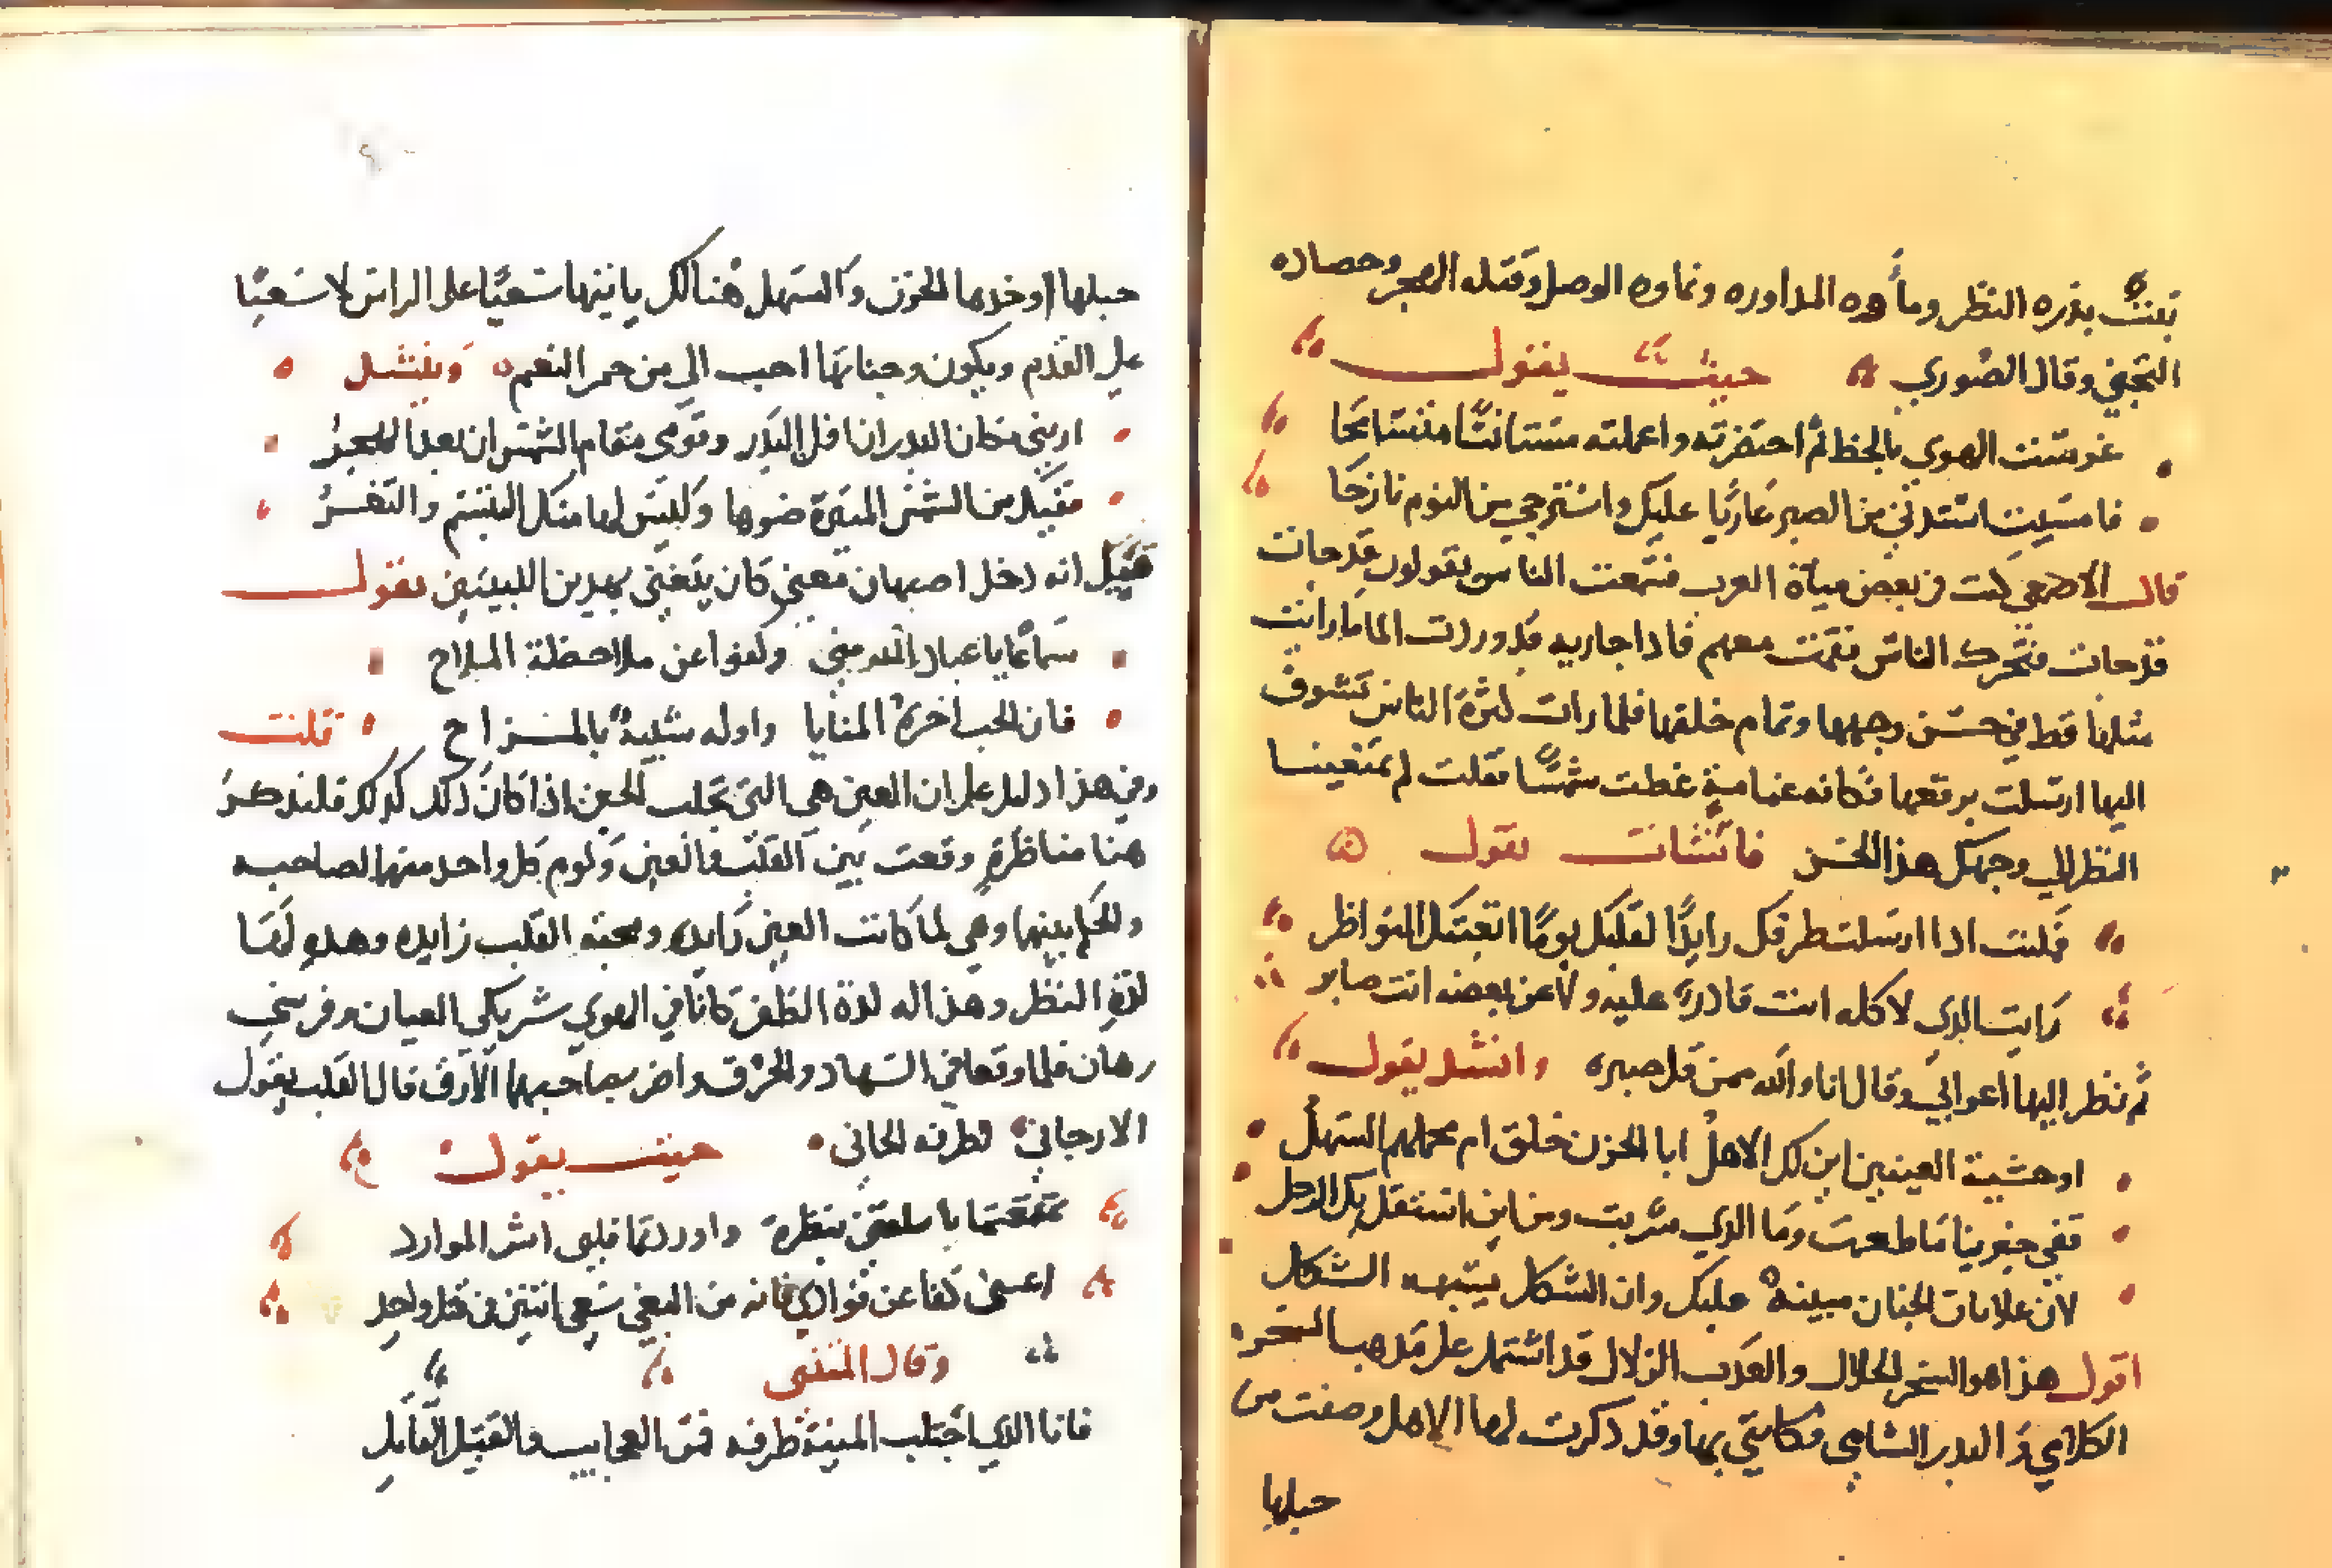 نبت بذره النظر وماؤه المداوره ونماوه الوصل وقتله الهجر وحصاده
التجني وقال الصوري حيث يقول
غرست الهوي بالحظ ثم احتقرته واعملته مستانسًا متسامحا
فامسيت استدني من الصبر عاريًا عليك واسترجي من النوم نازحا
قال الاصمعي كنت في بعض مياه العرب فسمعت الناس يقولون قد جات
قد جات فتحرك الناس فقمت معهم فاذا جاريه قد وردت الما ما رايت
مثلها قط في حسن وجهها وتمام خلقها فلما رات كثرة الناس تشوف
اليها ارسلت برقعها فكانه غمامة غطت شمسًا فقلت لم تمنعينا
النظر الي وجهك هذا الحسن فانشات تقول
وكنت اذا ارسلت طرفك رايدًا لقلبك يومًا اتعبتك المناظر
رايت الذي لا كله انت قادر عليه ولا عن بعضه انت صابر
ثم نظر اليها اعرابي وقال انا والله ممن قل صبره وانشد يقول
اوحشية العينين اين لك الاهل ابا الحزن خلق ام محلهم السهل
قفي خبرينا ما طعمت وما الذي شربت ومن اين استقل بك الرحل
لان علامات الجنان مبينة عليك وان الشكل يشبهه الشكل
اقول هذا هو السحر الحلال والعذب الزلال قد اشتمل على مذهب
الكلامي ذا البدر السامي فكانني بها وقد ذكرت لها الاهل وصفت من
حبلها
حبلها اوخدها الحزن والسهل هنالك ياتيها سعيًا على الراس لا سعيًا
على القدم ويكون وجناتها احب الي من حمر النعم وينشد
اريني مكان البدر ان افل البدر وقومي مقام الشمس ان بعد الفجر
ففيك من الشمس المنيرة ضوها وليس لها منك التبسم والثغر
قيل انه دخل اصبهان مغني كان يتغنى بهذين البيتين يقول
سماعًا يا عباد الله مني وكفوا عن ملاحظة الملاح
فان الحب اخره المنايا واوله شبيه بالمزاح قلت
وفي هذا دليل على ان العين هي التي تجلب الحين اذا كان ذلك كذلك فلنذكر
هنا مناظرة وقعت بين القلب والعين ولوم كل واحد منهما لصاحبه
والحكم بينهما وهي لما كانت العين رايده ومحبة القلب زايده وهذه لها
لذة النظر وهذا له لذة الظفر كانا في الهوي شريكي العيان وفرسي
رهان فلما وقعا في السهاد والحرق واضر بصاحبهما الارق قال القلب يقول
الارجاني لطرفه الجاني حيث يقول
تمتعتما يا سلعتي بنظرة واوردتما قلبي اشر الموارد
اعيني كفا عن فوادي فانه من البغي سعي اثنين في قتل واحد
وقال المتنبي
فانا الذي اجتلب المنية طرفه فمن العجايب والقتيل القاتل